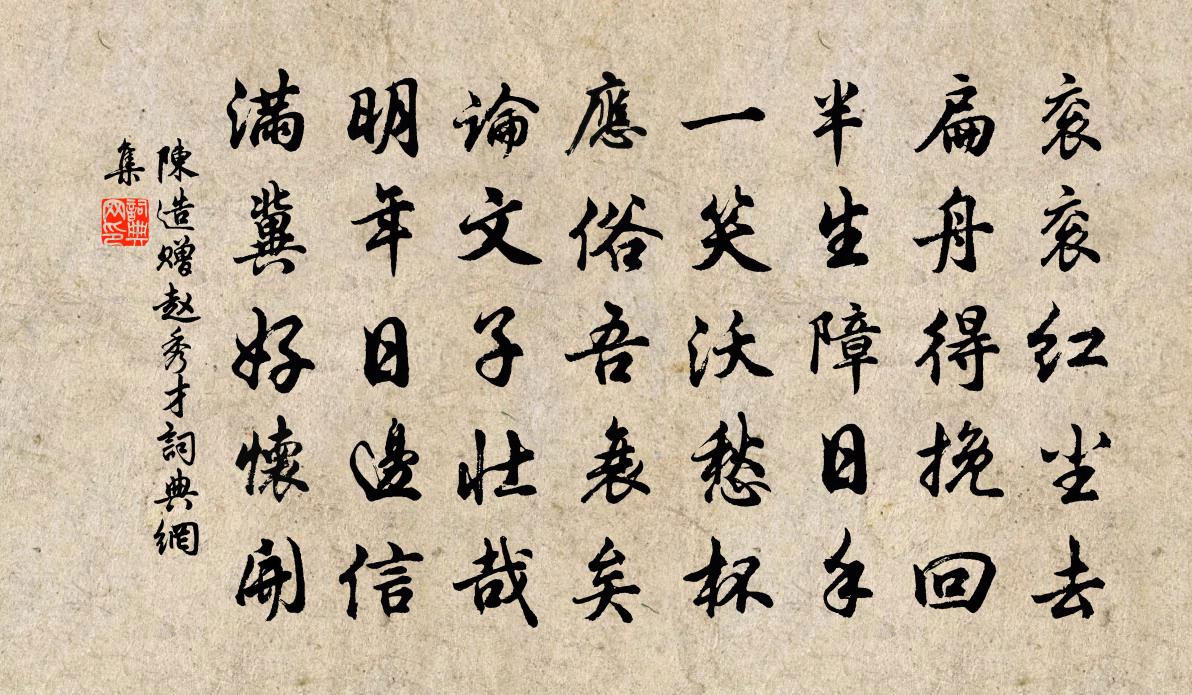 衮衮红尘去
扁舟得挽回
半生障日手
一笑沃愁杯
應俗吾衰矣
論文子壮哉
明年日邊信
满冀好懷開
陳造赠赵秀才詞典網
集
詞典网印